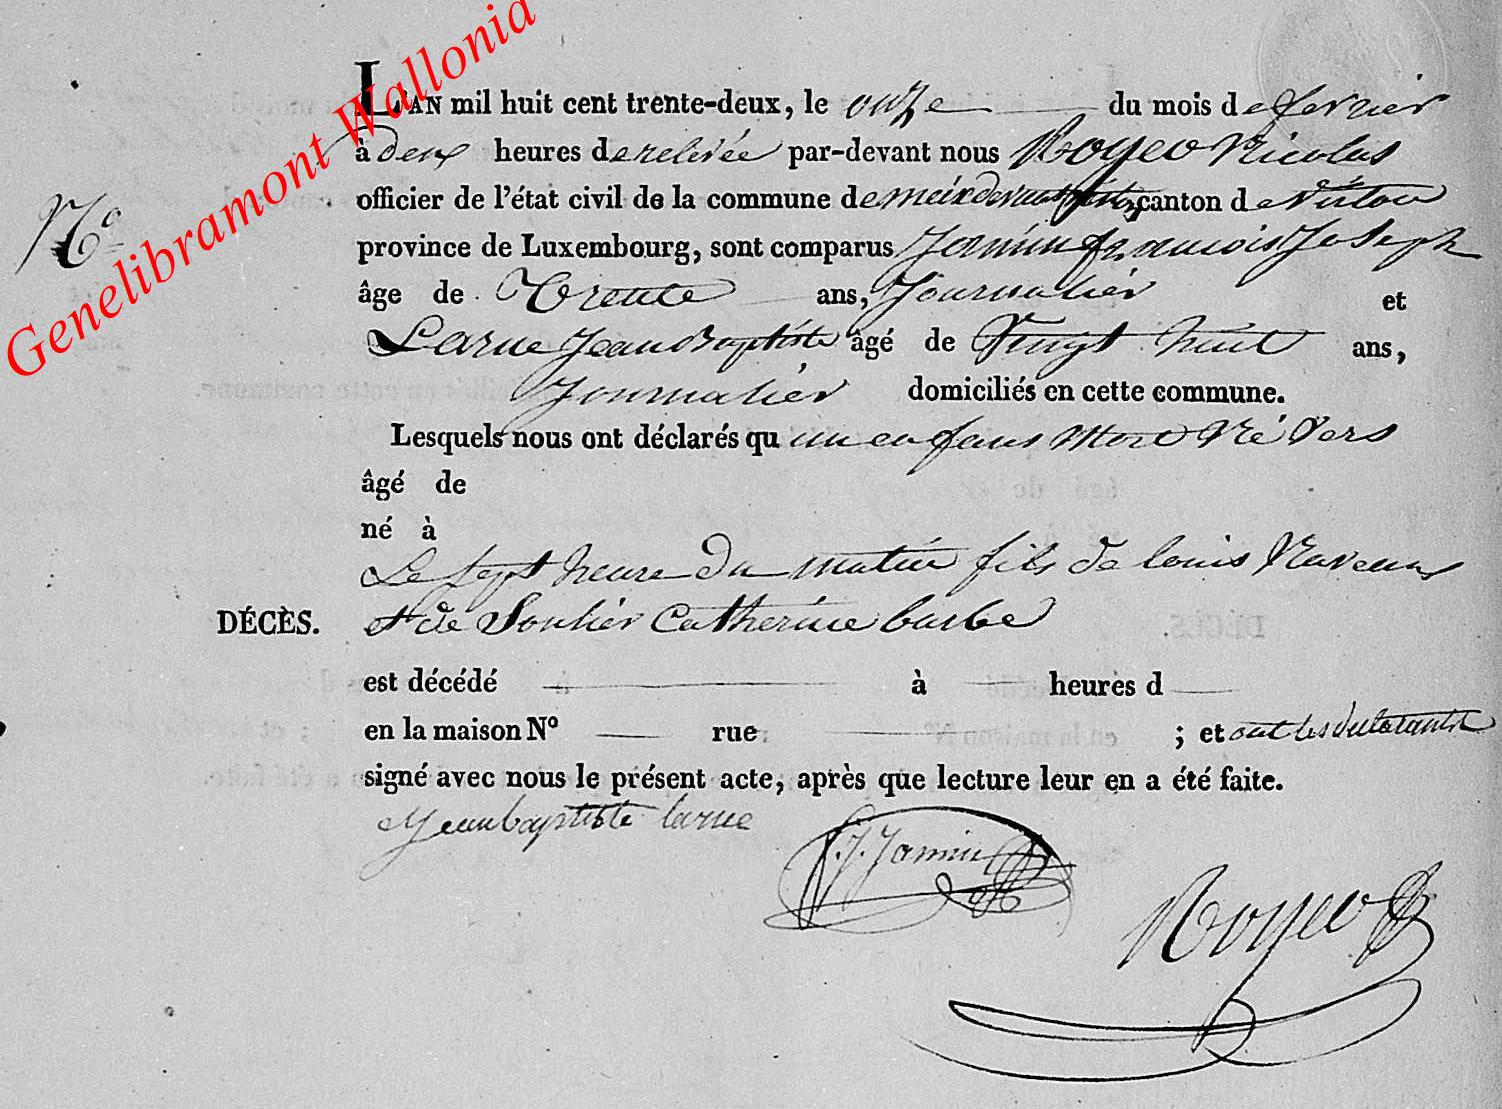 Genelibramont Wallonia
L'AN mil huit cent trente-deux, le onze du mois de fevrier
à deux heures de relevée par-devant nous Royer Nicolas
N°
officier de l'état civil de la commune de meix devant virton canton de Virton
province de Luxembourg, sont comparus Jamin francois Joseph
âge de Trente ans, Journalier et
Larue Jean Baptiste âgé de Vingt huit ans,
Journalier domiciliés en cette commune.
Lesquels nous ont déclarés qu un enfans Mort Né Vers
âgé de
né à
Le sept heure du matin fils de louis
DÉCÈS. et de Soulier Catherine barbe
est décédé à heures d
en la maison N° rue ; et ont les declarants
signé avec nous le présent acte, après que lecture leur en a été faite.
Jean baptiste larue
f. J. Jamin
Royer